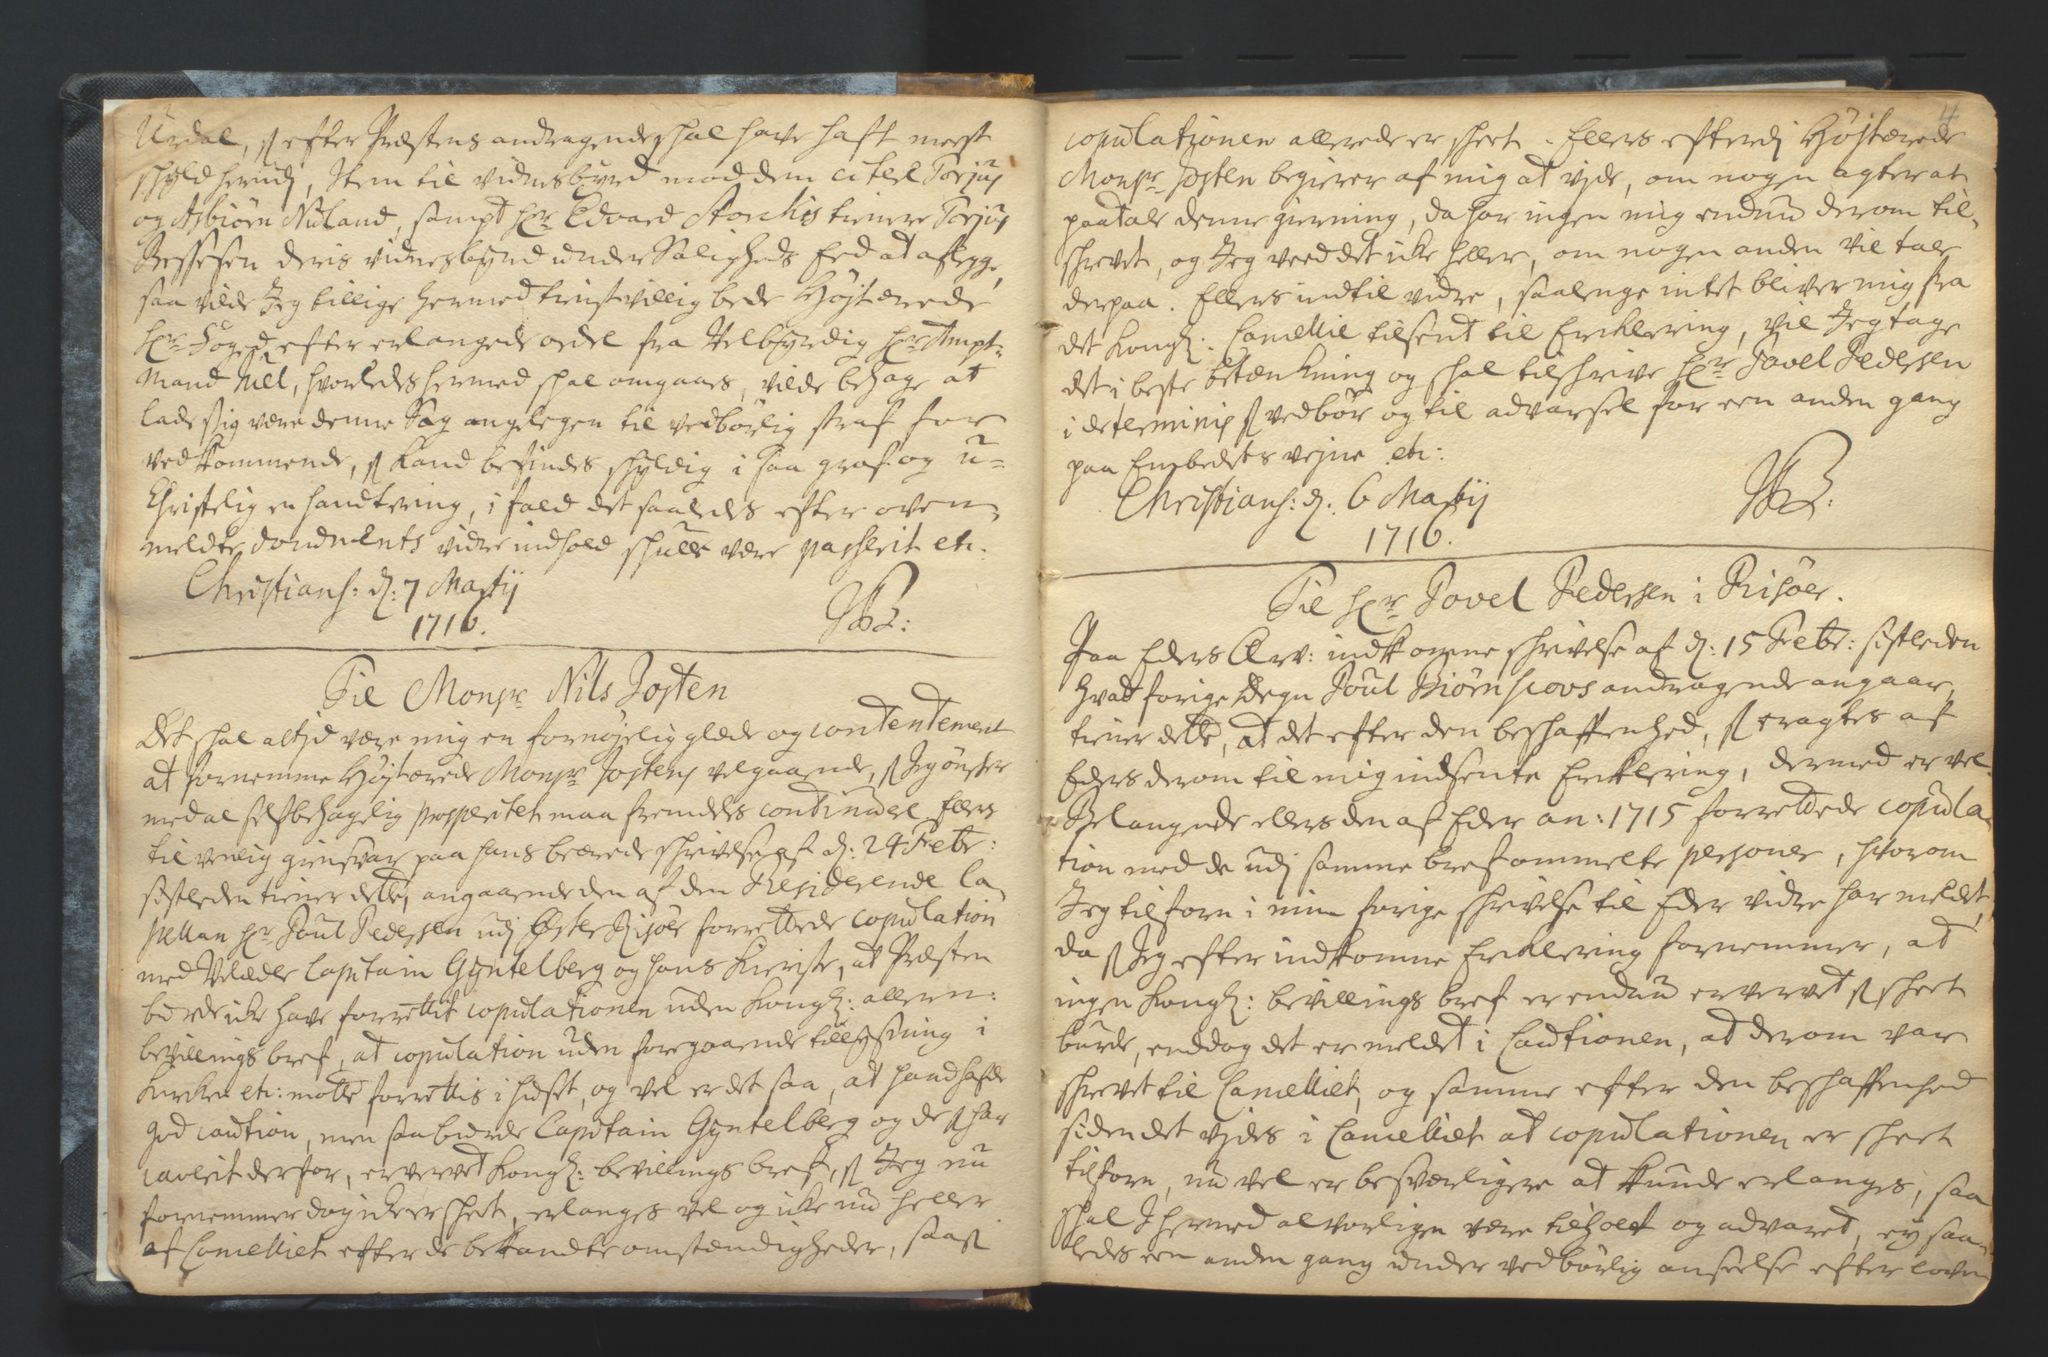 Urdal, ß efter Præstens andragende skal have haft meest
skyld herudj, Item til vidnesbyrd mod dem citere Torjus
og Asbiørn Nuland, sampt Hr Edvard Storkis tienere Torjus
deris vidnesbyrd under Saligheds Eed at aflegge,
saa vilde Jeg tillige hermed tienstvillig bede Høytærede
Hr Foged efter erlangede ordre fra Velbyrdig Hr Ampt-
mand hvorledes hermed skal omgaaes, vilde behage at
lade sig være denne Sag angelegen til vedbørlig straf for
vedkommende, ß kand befindes skyldig i saa graf og u-
Christelig en handtering, i fald det saaledes efter oven
meldte documents vidre indhold skulle være passerit etc.
Christians: d: 7 Martij
1716.
Til Monsr Nils Josten
Det skal altjd være mig en fornøyelig glæde og contentement
at fornemme Høytærede Monsr Jostens velgaaende, ß Jeg ønsker
med al selfbehagelig prosperitet maa fremdeles continuere. Ellers
til venlig giensvar paa hans beærede skrivelse af d: 24 Febr:
sistleden tiener dette, angaaende den af den Residerende Ca-
pellan Hr Poul Pedersen udj Øster Risøer forrettede copulation
med Velædle Capitain Gyntelberg og hans Kieriste, at Præsten
burde icke have forrettit copulationen uden Kongl: allern:
bevillings bref, at copulation uden foregaaende tillysning i
Kircken etc: motte forrettis i huset, og vel er det saa, at hand hafde
god caution, men saa burde Capitain Gyntelberg og de ß har
caverit derfor, ervervet Kongl: bevillings bref, ß Jeg nu
fornemmer dog icke er skeet, erlanges vel og icke nu heller
af Cancelliet efter de bekandte omstendigheder, saasom
4
copulationen allerede er skeet. Ellers efterdj Høytærede
Monsr Josten begierer af mig at vjde, om nogen agter at
paatale denne gierning, da har ingen mig endnu derom til-
skrevet, og Jeg veed det icke heller, om nogen anden vil tale
derpaa. Ellers indtil vidre, saalenge intet bliver mig fra
det Kongl: Cancellie tilsent til Erklering, vil Jeg tage
det i beste betænkning og skal tilskrive Hr Povel Pedersen
i de terminis ß vedbør og til advarsel for een anden gang
paa Embedets vejne etc:
Christians: d: 6 Martij
1716.
Til Hr Povel Pedersen i Risøer.
Paa Eders Ærv: indkomne skrivelse af d: 15 Febr: sistleden
hvad forige Degn Poul Biørnscovs andragende angaar,
tiener dette, at det efter den beskaffenhed, ß eragtes af
Eders derom til mig indsente Erklering, dermed er vel.
Belangende ellers den af Eder an: 1715 forrettede copula-
tion med de udj samme bref ommelte personer, hvorom
Jeg tilforn i min forige skrivelse til Eder vidre har meldet,
da ß Jeg efter indkomne Erklering fornemmer, at
ingen Kongl: bevillings bref er endnu ervervet ß skeet
burde, enddog det er meldet i Cautionen, at derom var
skrevet til Cancelliet, og samme efter den beskaffenhed
siden det vjdes i Cancelliet at copulationen er skeet
tilforn, nu vel er besværligere at kunde erlanges, saa
skal I hermed alvorligen være tilholt og advaret, ey saa-
ledes een anden gang under vedbørlig anseelse efter loven